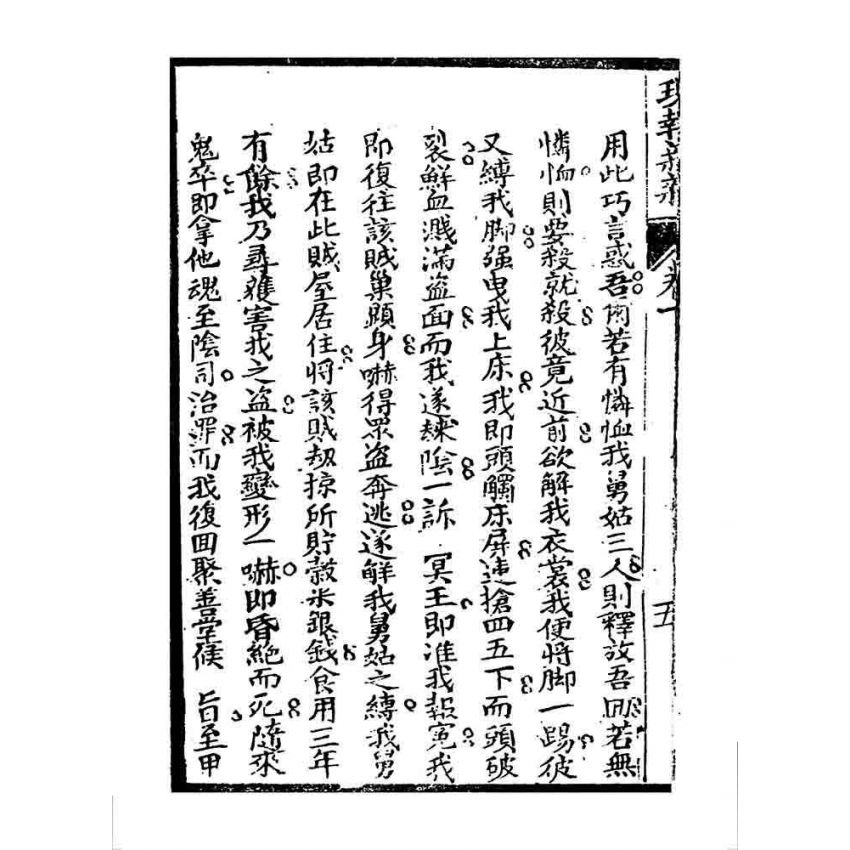 報新
卷一
五
用此巧言惑吾爾若有憐恤我舅姑三人則釋放吾回若無
憐恤則要殺就殺彼竟近前欲解我衣裳我便將脚一踢彼
又縛我脚强曳我上床我即頭觸床屏連搶四五下而頭破
裂鮮血濺滿盗面而我遂歸陰一訴 冥王即准我報寃我
即復往該賊巢顕身嚇得眾盗奔逃遂解我舅姑之縛我舅
姑即在此賊屋居住將該賊刼掠所貯穀米銀錢食用三年
有餘我乃尋獲害我之盗被我變形一嚇即昏絕而死隨來
鬼卒即拿他魂至陰司治罪而我復回聚善堂候 旨至甲